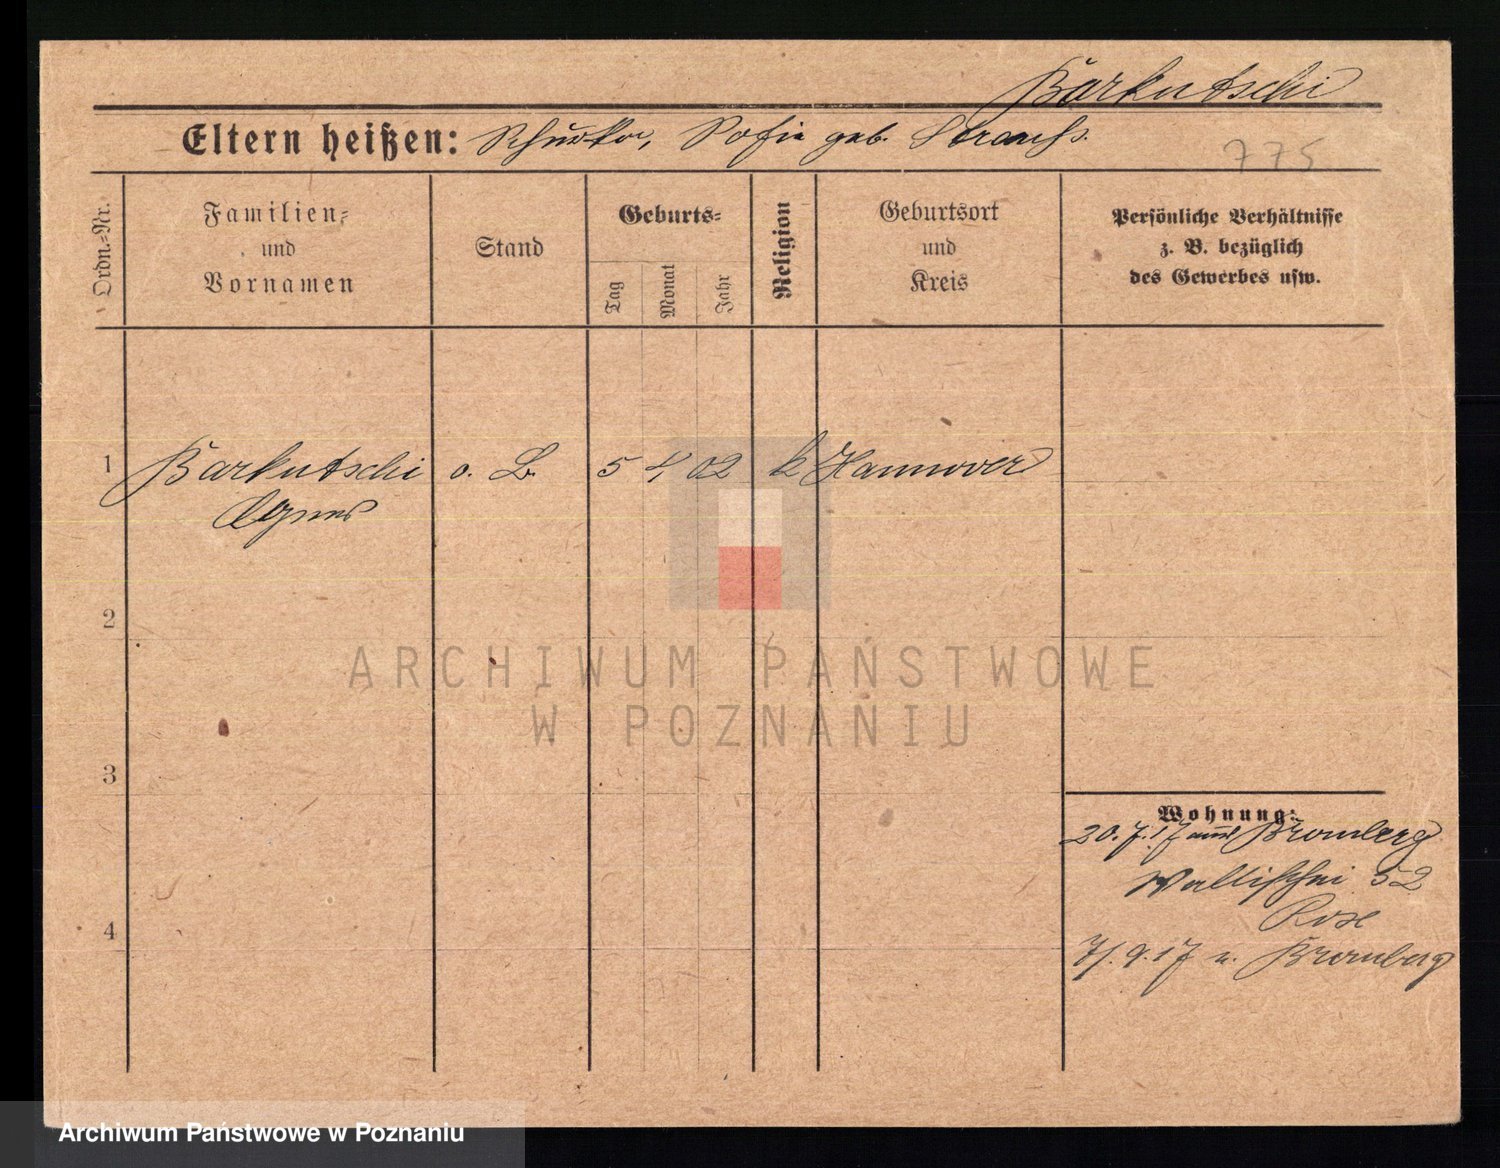 Barkutschi
Eltern heißen: Sofie geb. Strauß.
775
Ordn.-Nr.
Familien-
und
Vornamen
Stand
Geburts-
Tag
Monat
Jahr
Religion
Geburtsort
und
Kreis
Persönliche Verhältnisse
z. B. bezüglich
des Gewerbes usw.
1 Barkutschi o. B. 5 4 02 k Hannover
Agnes
2
ARCHIWUM PAŃSTWOWE
W POZNANIU
3
Wohnung:
20.7.17 aus Bromberg
Wallischei 52
Rose
7/.9.17 n. Bromberg
4
Archiwum Państwowe w Poznaniu